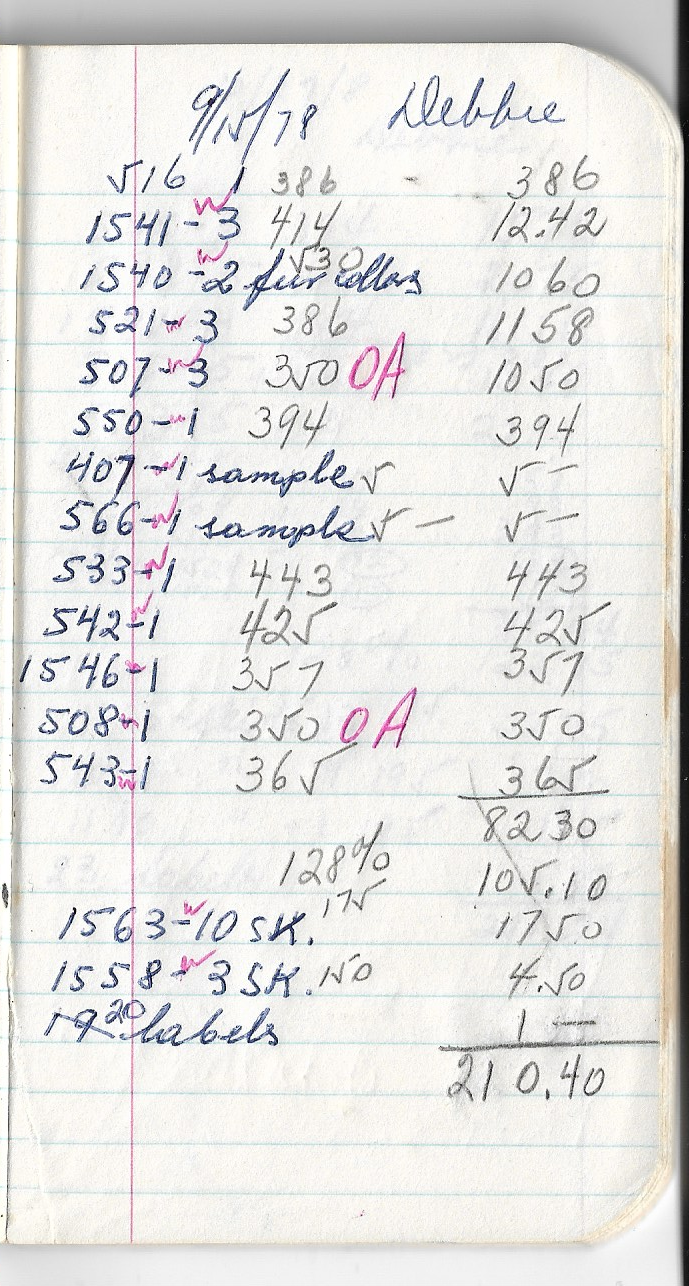 9/15/78 Debbie
516 1 386 - 386
1541-3 414 12.42
1540-2 fur collars 530 1060
521-3 386 1158
507-3 350 OA 1050
550-1 394 394
407-1 sample 5 5 —
566-1 sample 5 — 5 —
533-1 443 443
542-1 425 425
1546-1 357 357
508-1 350 OA 350
543-1 365 365
8230
128% 105.10
1563-10 SK. 175 1750
1558-3 SK. 150 4.50
20 labels 1 —
210.40